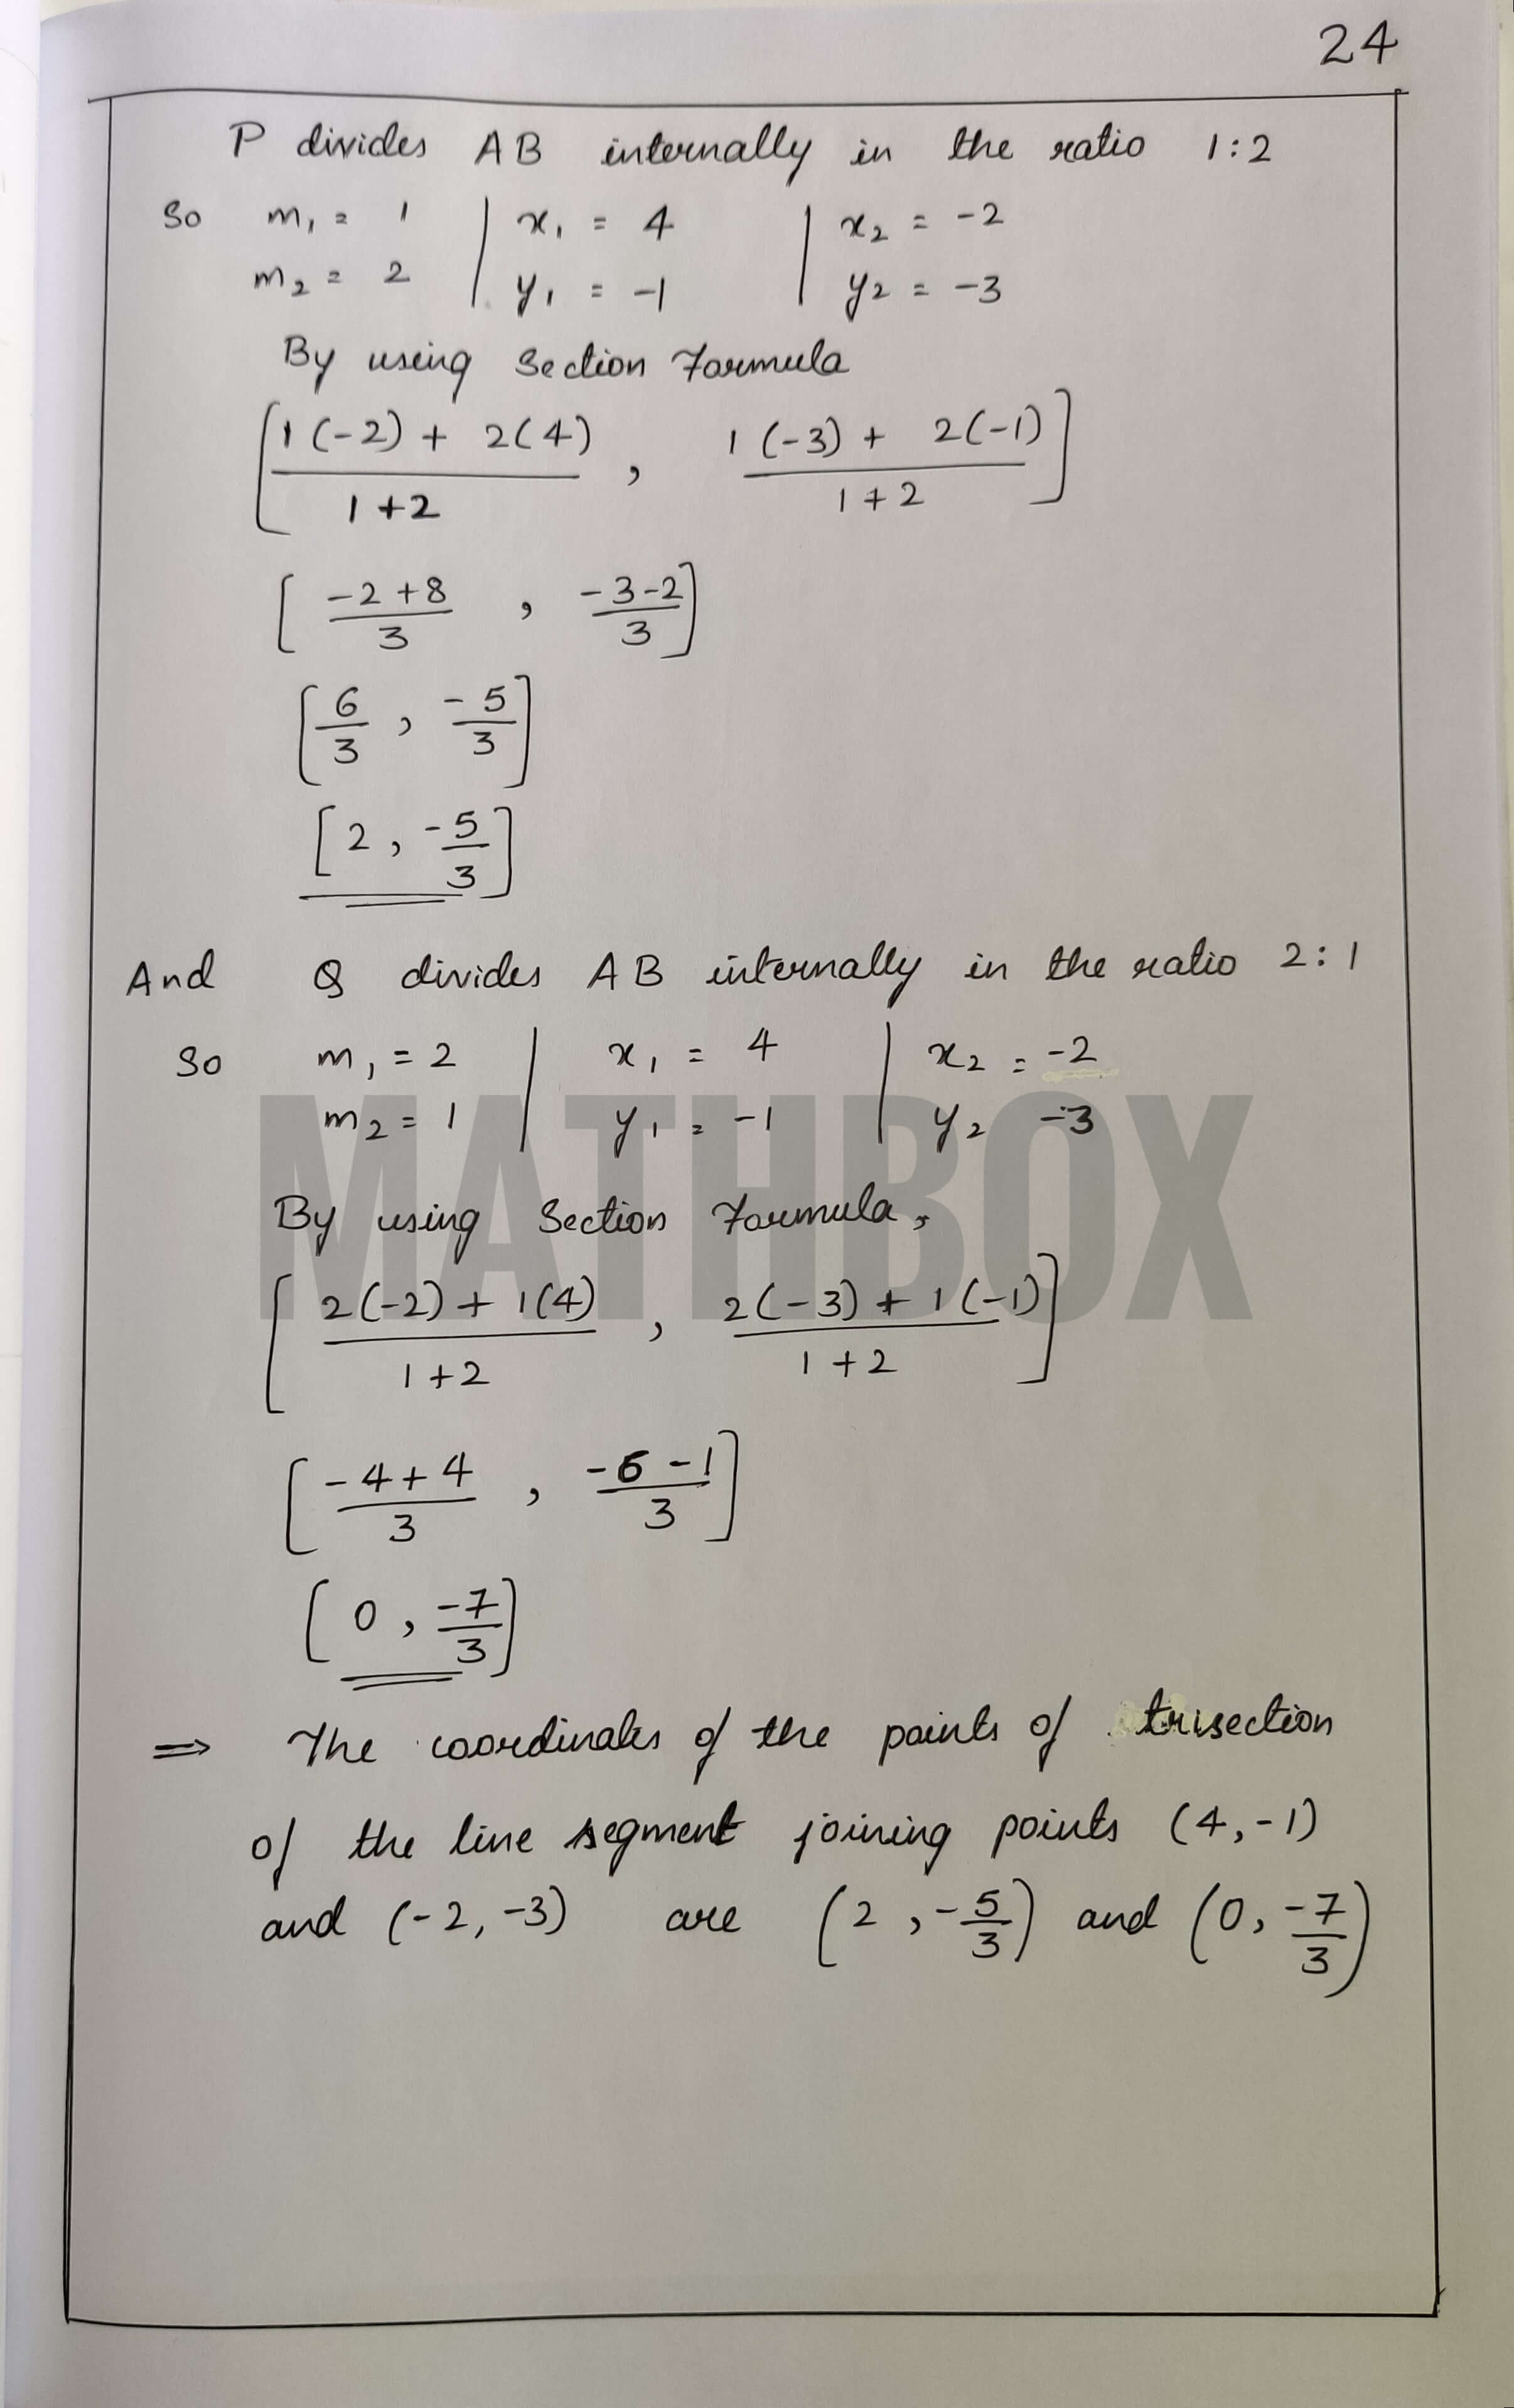 24
P divides AB internally in the ratio 1:2
So m₁ = 1 | x₁ = 4 | x₂ = -2
m₂ = 2 | y₁ = -1 | y₂ = -3
By using Section Formula
[ (1(-2) + 2(4))/(1+2) , (1(-3) + 2(-1))/(1+2) ]
[ (-2+8)/3 , (-3-2)/3 ]
[ 6/3 , -5/3 ]
[ 2 , -5/3 ]
And Q divides AB internally in the ratio 2:1
So m₁ = 2 | x₁ = 4 | x₂ = -2
m₂ = 1 | y₁ = -1 | y₂ -3
MATHBOX
By using Section Formula,
[ (2(-2) + 1(4))/(1+2) , (2(-3) + 1(-1))/(1+2) ]
[ (-4+4)/3 , (-6-1)/3 ]
[ 0 , -7/3 ]
⇒ The coordinates of the points of trisection
of the line segment joining points (4,-1)
and (-2,-3) are (2 , -5/3) and (0, -7/3)